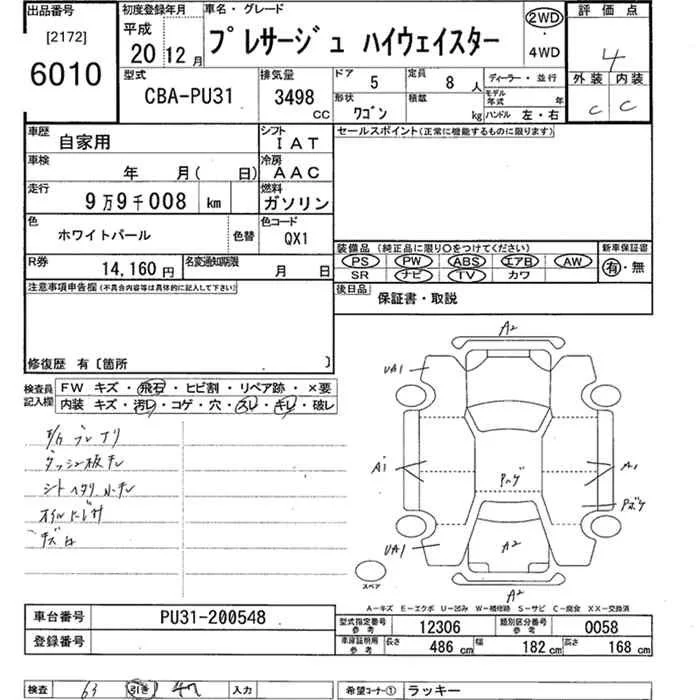 出品番号 初度登録年月 車名・グレード 評価点
[2172] 平成 2WD
6010 20 12月 プレサージュ ハイウェイスター ・ 4
4WD
型式 排気量 ドア 5 定員 8人 ディーラー・並行 外装 内装
CBA-PU31 3498cc 形状 ワゴン 積載 kg モデル年式 年 C C
ハンドル 左・右
車歴 自家用 シフト IAT セールスポイント(正常に機能するものに限ります)
車検 年 月( 日) 冷房 AAC
走行 9万9千008 km 燃料 ガソリン
色 ホワイトパール 色替 色コード QX1
装備品 (純正品に限り○をつけてください) 新車保証書
R券 14,160円 名変通知期限 月 日 PS PW ABS エアB AW 有・無
SR ナビ TV カワ
注意事項申告欄(不具合内容等は具体的に記入して下さい) 後日品 保証書・取説
修復歴 有〔箇所 〕
A2
UA1
検査員記入欄 FW キズ・飛石・ヒビ割・リペア跡・×要
内装 キズ・汚レ・コゲ・穴・スレ・キレ・破レ
ダッシュ板キレ
A1 A1
UA1 A2
スペア
A2
A-キズ E-エクボ U-凹み W-補修跡 S-サビ C-腐食 XX-交換済
車台番号 PU31-200548
型式指定番号 参考 12306 類別区分番号 参考 0058
登録番号
車庫証明用 参考 長さ 486cm 幅 182cm 高さ 168cm
検査 63 引き 入力 希望コーナー① ラッキー